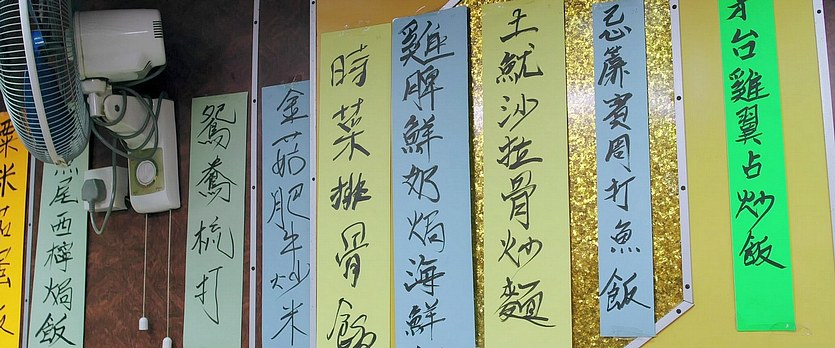 台雞翼占炒飯
忌廉賓周打魚飯
土魷沙拉骨炒麵
雞脾鮮奶焗海鮮
時菜排骨飯
金菇肥牛炒米
鴛鴦梳打
尾西檸焗飯
米茄蛋